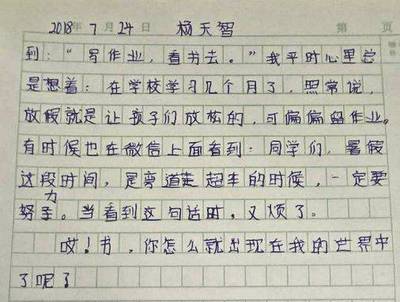 2018年 7月 24日 杨天智 第 页
到：“写作业，看书去。”我平时心里总
是想着：在学校学习几个月了，照常说，
放假就是让孩子们放松的，可偏偏留作业。
有时候也在微信上面看到：同学们，暑假
这段时间，是弯道超车的时候，一定要
努力。当看到这句话时，又烦了。
哎！书，你怎么就出现在我的世界中
了呢了